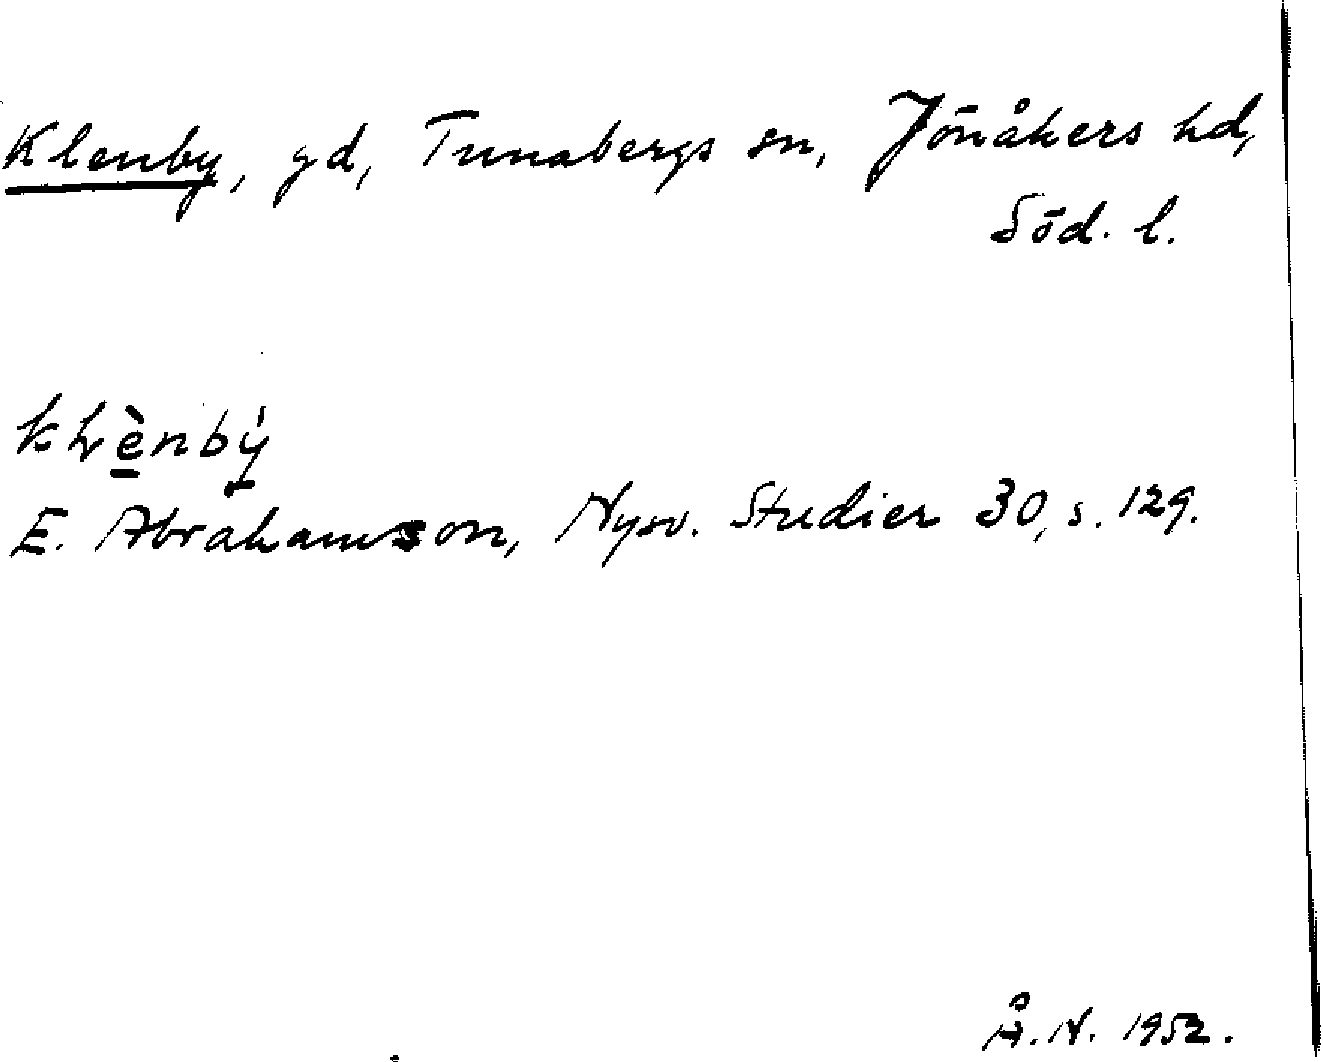 Klenby, gd, Tunabergs sn, Jönåkers hd,
Söd. l.
E. Abrahamson, Nysv. Studier 30, s. 129.
Å. N. 1952.